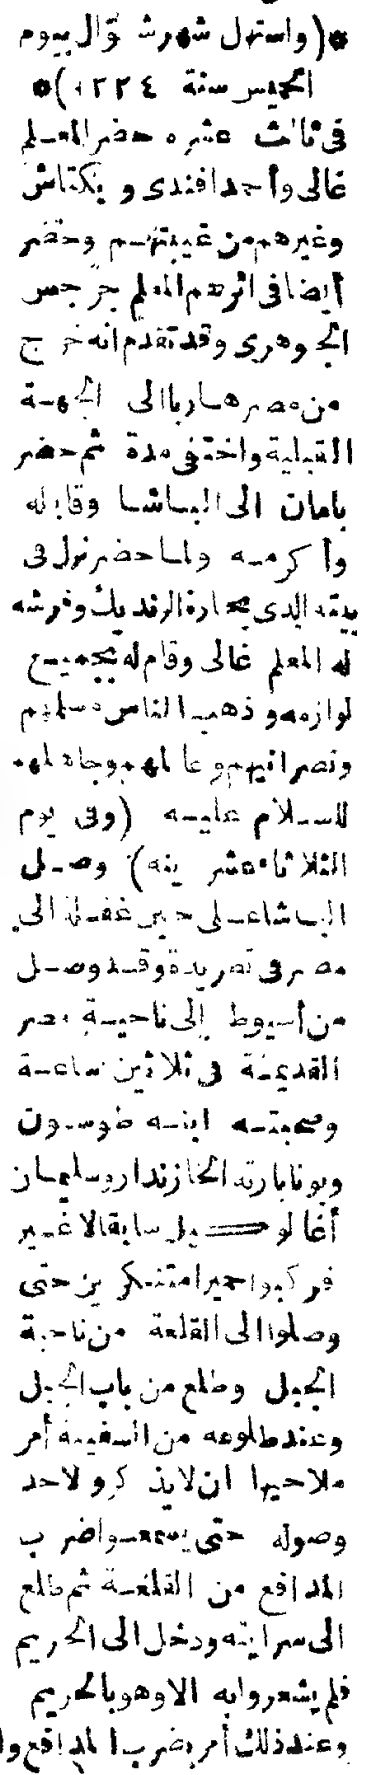 *(واستهل شهر شوّال بيوم
الخميس سنة ١٢٢٤)*
فى ثالث عشره حضر المعلم
غالى وأحمد افندى و بكتاش
وغيرهم من غيبتهم وحضر
أيضا فى اثرهم المعلم جرجس
الجوهرى وقد تقدم انه خرج
من مصر هاربا الى الجهة
القبلية واختفى مدة ثم حضر
بامان الى الباشا وقابله
وأكرمه ولما حضر نزل فى
بيته الذى بحارة الونديك وفرشه
له المعلم غالى وقام له بجميع
لوازمه وذهب الناس مسلمهم
ونصرانيهم وعالمهم وجاهلهم
للسلام عليه (وفى يوم
الثلاثاء عشرينه) وصل
الباشا على حين غفلة الى
مصر فى تطريدة وقد وصل
من أسيوط إلى ناحية مصر
القديمة فى ثلاثين ساعة
وصحبته ابنه طوسون
وبونابارته الخازندار وسليمان
أغا لوكيل سابقا لا غير
فركبوا حميرا متنكرين حتى
وصلوا الى القلعة من ناحية
الجبل وطلع من باب الجبل
وعند طلوعه من السفينة أمر
ملاحيها ان لايذكرو لاحد
وصوله حتى يسمعوا ضرب
المدافع من القلعة ثم طلع
الى سرايته ودخل الى الحريم
فلم يشعروا به الا وهو بالحريم
وعند ذلك أمر بضرب المدافع وا